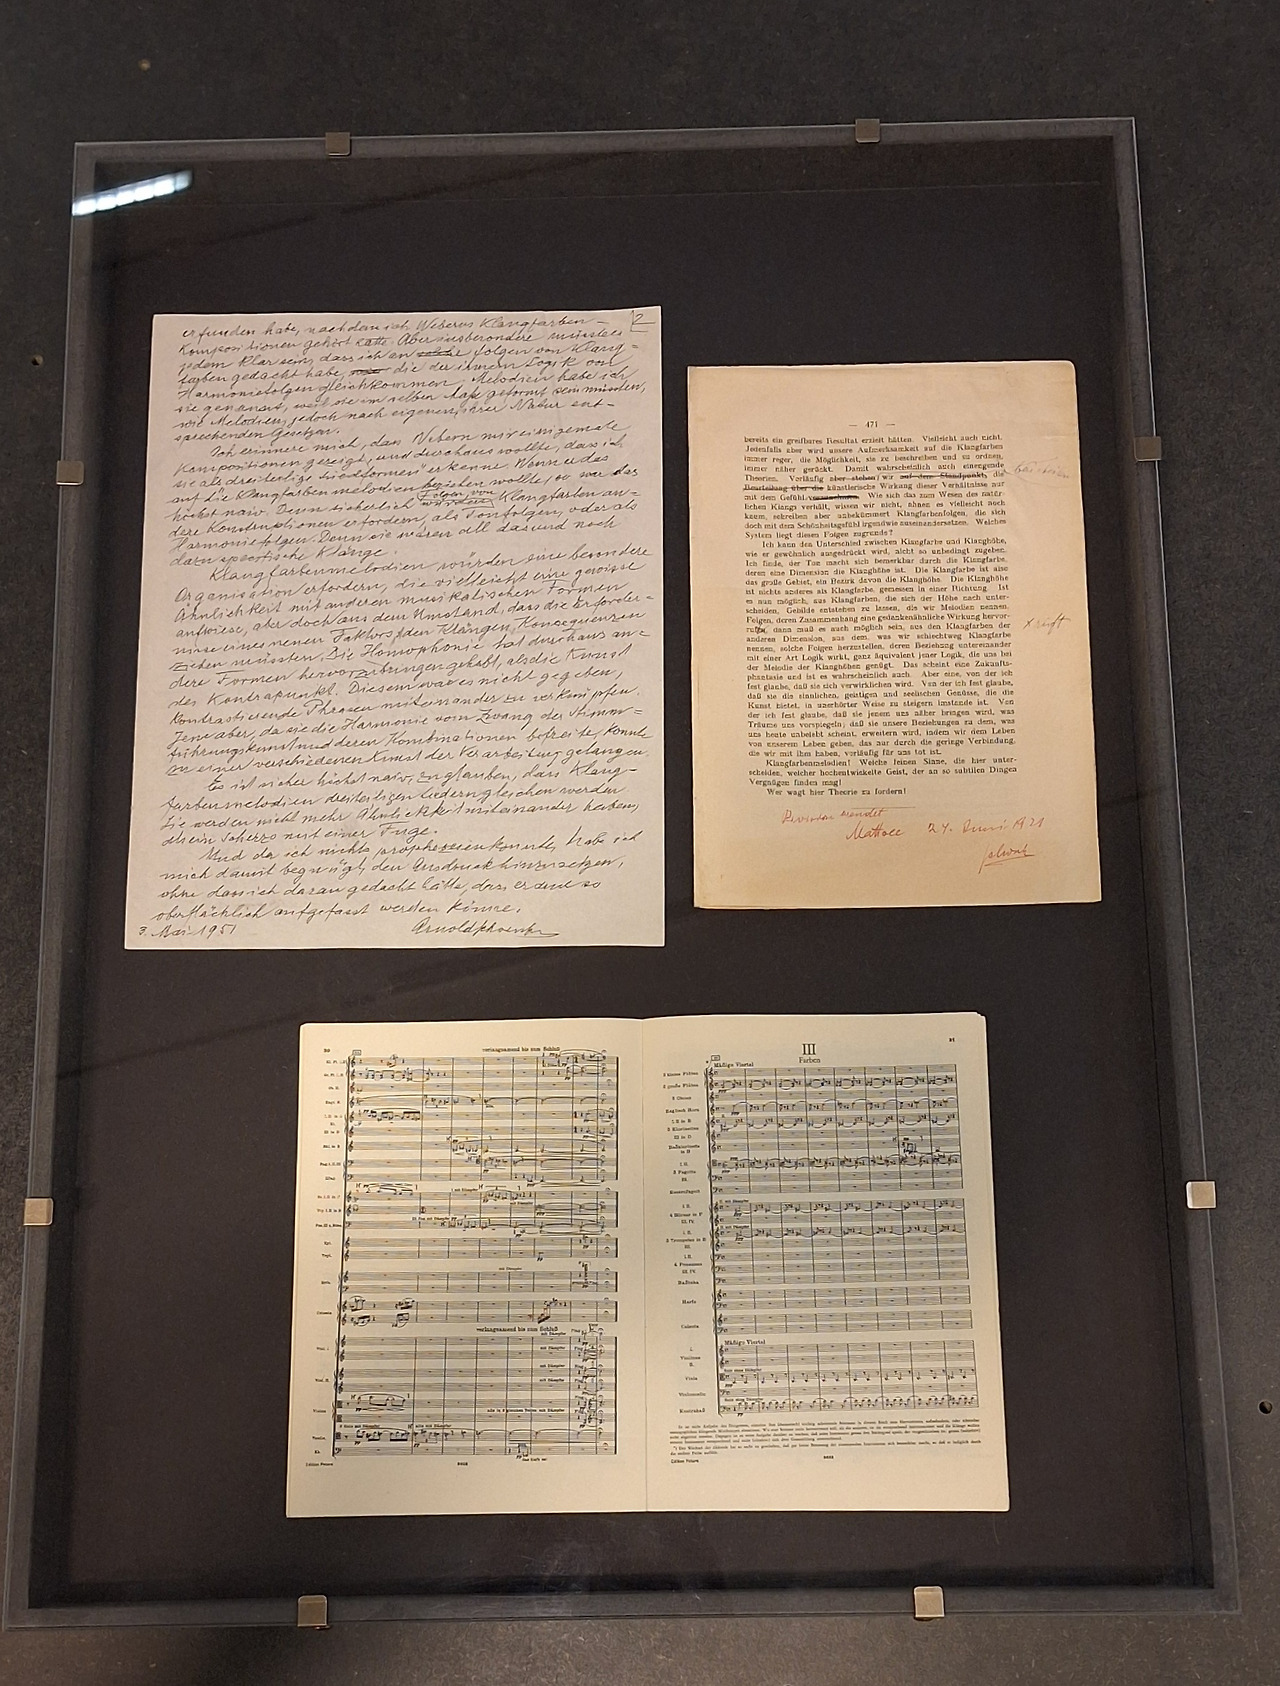 2
erfunden habe, nachdem ich Weberns Klangfarben-
kompositionen gehört hatte. Aber insbesondere müsste es
jedem klar sein, dass ich an solche Folgen von Klang=
farben gedacht habe, die der innern Logik von
Harmoniefolgen gleichkommen. Melodien habe ich
sie genannt, weil sie im selben Maße geformt sein müssten,
wie Melodien, jedoch nach eigenen, ihrer Natur ent-
sprechenden Gesetzen.
Ich erinnere mich, dass Webern mir einigemale
Kompositionen gezeigt, und durchaus wollte, dass ich
sie als dreiteilige Liedformen erkenne. Wenn er das
auf die Klangfarbenmelodien beziehen wollte, so war das
höchst naiv. Denn sicherlich würden Folgen von Klangfarben an=
dere Konstruktionen erfordern, als Tonfolgen, oder als
Harmoniefolgen. Denn sie wären all das und noch
dazu spezifische Klänge.
Klangfarbenmelodien würden eine besondere
Organisation erfordern, die vielleicht eine gewisse
Ähnlichkeit mit anderen musikalischen Formen
aufwiese, aber doch aus dem Umstand, dass die Erforder-
nisse eines neuen Faktors, den Klängen, Konsequenzen
ziehen müssten. Die Homophonie hat durchaus an=
dere Formen hervorzubringen gehabt, als die Kunst
des Kontrapunkt. Diesem war es nicht gegeben,
kontrastierende Phrasen miteinander zu verknüpfen.
Jene aber, da sie die Harmonie vom Zwang der Stimm=
führungskunst und deren Kombinationen befreite, konnte
zu einer verschiedenen Kunst der Verarbeitung gelangen.
Es ist sicher höchst naiv, zu glauben, dass Klang-
farbenmelodien dreiteiligen Liedern gleichen werden
Sie werden nicht mehr Ähnlichkeit miteinander haben,
als ein Scherzo mit einer Fuge.
Und da ich nichts prophezeien konnte, habe ich
mich damit begnügt, den Ausdruck hinzusetzen,
ohne dass ich daran gedacht hätte, dass er denn so
oberflächlich aufgefasst werden könne.
3. Mai 1951 Arnold Schoenberg
— 471 —
bereits ein greifbares Resultat erzielt hätten. Vielleicht auch nicht.
Jedenfalls aber wird unsere Aufmerksamkeit auf die Klangfarben
immer reger, die Möglichkeit, sie zu beschreiben und zu ordnen,
immer näher gerückt. Damit wahrscheinlich auch einengende
Theorien. Vorläufig aber stehen wir auf dem Standpunkt, die
Beurteilung über die künstlerische Wirkung dieser Verhältnisse nur
mit dem Gefühl. Wie sich das zum Wesen des natür-
lichen Klangs verhält, wissen wir nicht, ahnen es vielleicht noch
kaum, schreiben aber unbekümmert Klangfarbenfolgen, die sich
doch mit dem Schönheitsgefühl irgendwie auseinandersetzen. Welches
System liegt diesen Folgen zugrunde?
Ich kann den Unterschied zwischen Klangfarbe und Klanghöhe,
wie er gewöhnlich ausgedrückt wird, nicht so unbedingt zugeben.
Ich finde, der Ton macht sich bemerkbar durch die Klangfarbe,
deren eine Dimension die Klanghöhe ist. Die Klangfarbe ist also
das große Gebiet, ein Bezirk davon die Klanghöhe. Die Klanghöhe
ist nichts anderes als Klangfarbe, gemessen in einer Richtung. Ist
es nun möglich, aus Klangfarben, die sich der Höhe nach unter-
scheiden, Gebilde entstehen zu lassen, die wir Melodien nennen,
Folgen, deren Zusammenhang eine gedankenähnliche Wirkung hervor-
rufen, dann muß es auch möglich sein, aus den Klangfarben der
anderen Dimension, aus dem, was wir schlechtweg Klangfarbe
nennen, solche Folgen herzustellen, deren Beziehung untereinander
mit einer Art Logik wirkt, ganz äquivalent jener Logik, die uns bei
der Melodie der Klanghöhen genügt. Das scheint eine Zukunfts-
phantasie und ist es wahrscheinlich auch. Aber eine, von der ich
fest glaube, daß sie sich verwirklichen wird. Von der ich fest glaube,
daß sie die sinnlichen, geistigen und seelischen Genüsse, die die
Kunst bietet, in unerhörter Weise zu steigern imstande ist. Von
der ich fest glaube, daß sie jenem uns näher bringen wird, was
Träume uns vorspiegeln; daß sie unsere Beziehungen zu dem, was
uns heute unbelebt scheint, erweitern wird, indem wir dem Leben
von unserem Leben geben, das nur durch die geringe Verbindung,
die wir mit ihm haben, vorläufig für uns tot ist.
Klangfarbenmelodien! Welche feinen Sinne, die hier unter-
scheiden, welcher hochentwickelte Geist, der an so subtilen Dingen
Vergnügen finden mag!
Wer wagt hier Theorie zu fordern!
Revision beendet
Mattsee 24. Juni 1921
30
verlangsamend bis zum Schluß
verlangsamend bis zum Schluß
Edition Peters
31
III
Farben
Mäßige Viertel
2 kleine Flöten
2 große Flöten
3 Oboen
Englisch Horn
I. II. in B
3 Klarinetten
III in D
Baßklarinette
in B
I. II.
3 Fagotte
III.
Kontrafagott
I. II.
4 Hörner in F
III. IV.
I. II.
3 Trompeten in B
III.
I. II.
4 Posaunen
III. IV.
Baßtuba
Harfe
Celesta
Mäßige Viertel
I.
Violinen
II.
Viola
Violoncello
Kontrabaß
Edition Peters